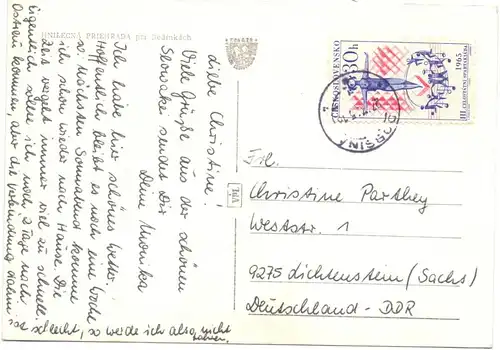 HNILECKÁ PRIEHRADA pri Dedinkách
Liebe Christine!
Viele Grüße aus der schönen
Slowakei sendet Dir
Deine Monika
Ich habe hier schönes Wetter.
Hoffentlich bleibt es noch eine Woche
so. Nächsten Sonnabend komme
ich schon wieder nach Hause. Die
Zeit vergeht immer viel zu schnell.
Eigentlich ich noch 2 Tage nach
Ostrau kommen, aber die Verbindung dahin
ist schlecht, so werde ich also nicht
fahren.
ČESKOSLOVENSKO
30h
1965
III. CELOSTÁTNÍ SPARTAKIÁDA
Frl.
Christine Parthey
Weststr. 1
9275 Lichtenstein (Sachs)
Deutschland - DDR